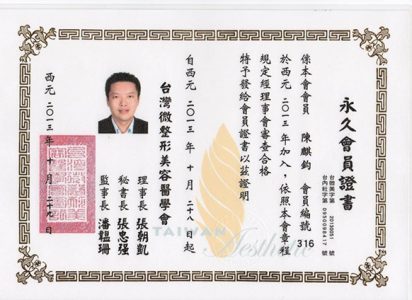 永久會員證書
台內社字第0950098417號
係本會會員 陳麒鈞 會員編號 316
於西元二〇一三年加入，依照本會章程
規定經理事會審查合格
特予發給會員證書以茲證明
自西元二〇一三年十月二十八日起
台灣微整形美容醫學會
理事長 張朝凱
秘書長 張忠強
監事長 潘韞珊
西元二〇一三年十月二十九日
TAIWAN
Aesthetic